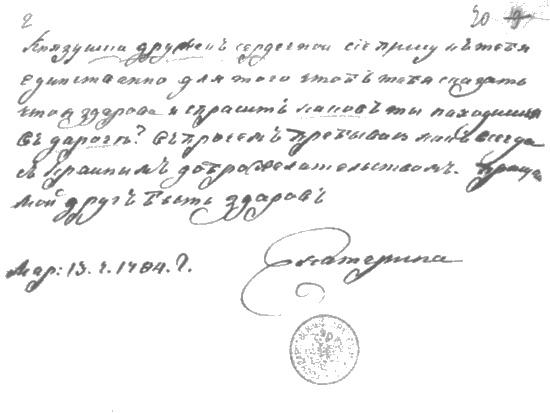 2
20
Князушка дружекъ сердечной сіе пишу къ тебѣ
единственно для того чтобъ тебя сказать
что я здорова и спросить каковъ ты находишся
въ дарогѣ? въпрочемъ пребываю какъ всегда
съ крайнымъ доброжелательствомъ. Прощай
мой другъ быть здоровъ
Мар: 13. ч. 1784. г.
Екатерина